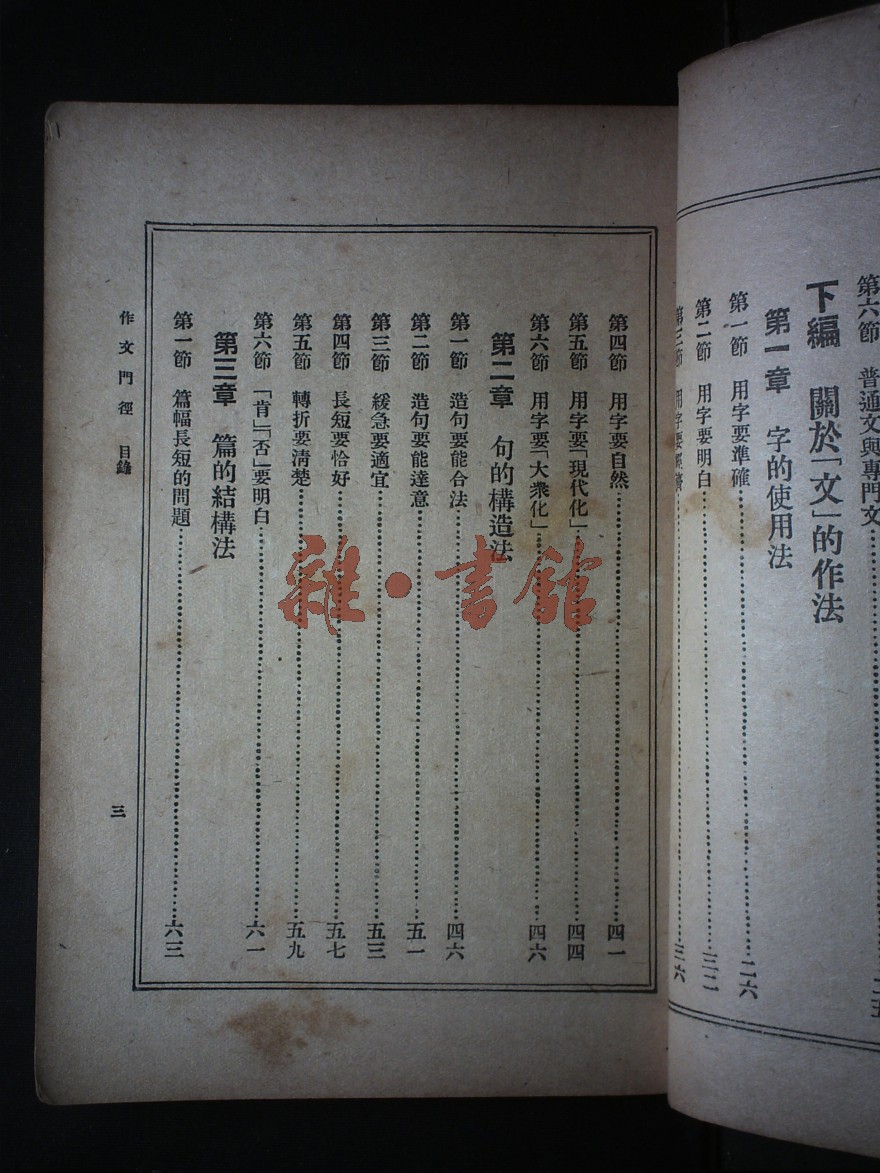 第六節　普通文與專門文……二五
下編　關於「文」的作法
第一章　字的使用法
第一節　用字要準確……二六
第二節　用字要明白……三二
第三節　用字要經濟……三六
第四節　用字要自然……四一
第五節　用字要「現代化」……四四
第六節　用字要「大衆化」……四六
第二章　句的構造法
第一節　造句要能合法……四六
第二節　造句要能達意……五一
第三節　緩急要適宜……五三
第四節　長短要恰好……五七
第五節　轉折要清楚……五九
第六節　「肯」「否」要明白……六一
第三章　篇的結構法
第一節　篇幅長短的問題……六三
作文門徑　目錄
三
雜·書館